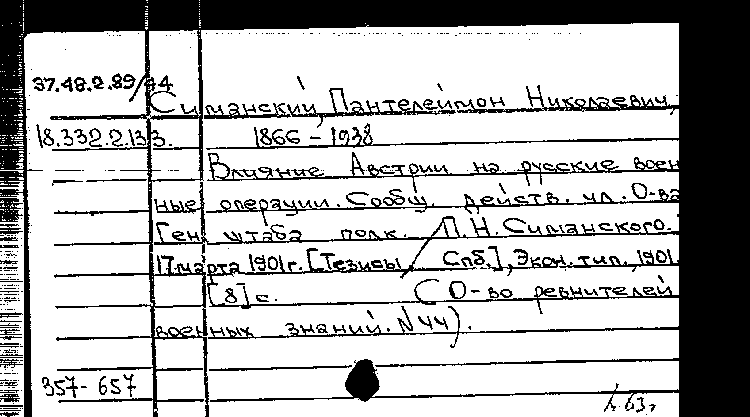 37.48.2.89/74
Симанский, Пантелеймон Николаевич,
18.332.2.133. 1866 - 1938
Влияние Австрии на русские воен
ные операции. Сообщ. действ. чл. О-ва
Ген. штаба полк. П.Н. Симанского.
17 марта 1901 г. [Тезисы. Спб.], Экон. тип., 1901.
[8] с. (О-во ревнителей
военных знаний. N 44).
357- 657